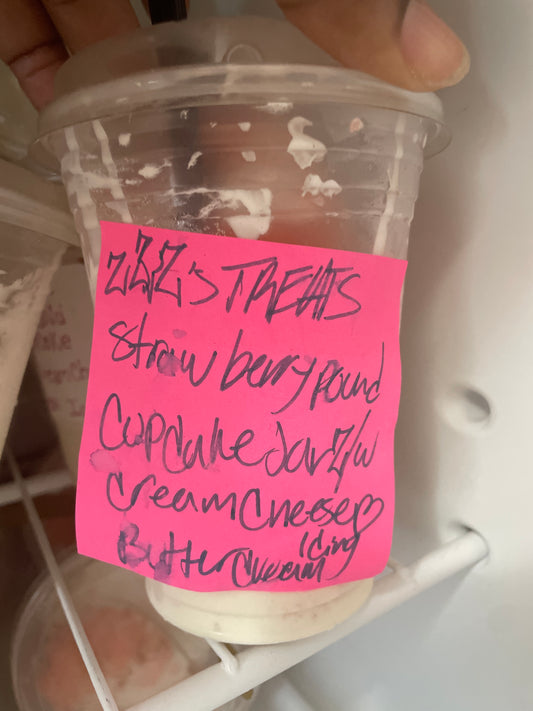 ZZZ's TREATS
Strawberry Pound
Cupcake Jarz/w
Cream Cheese♡
Icing
Butter Cream